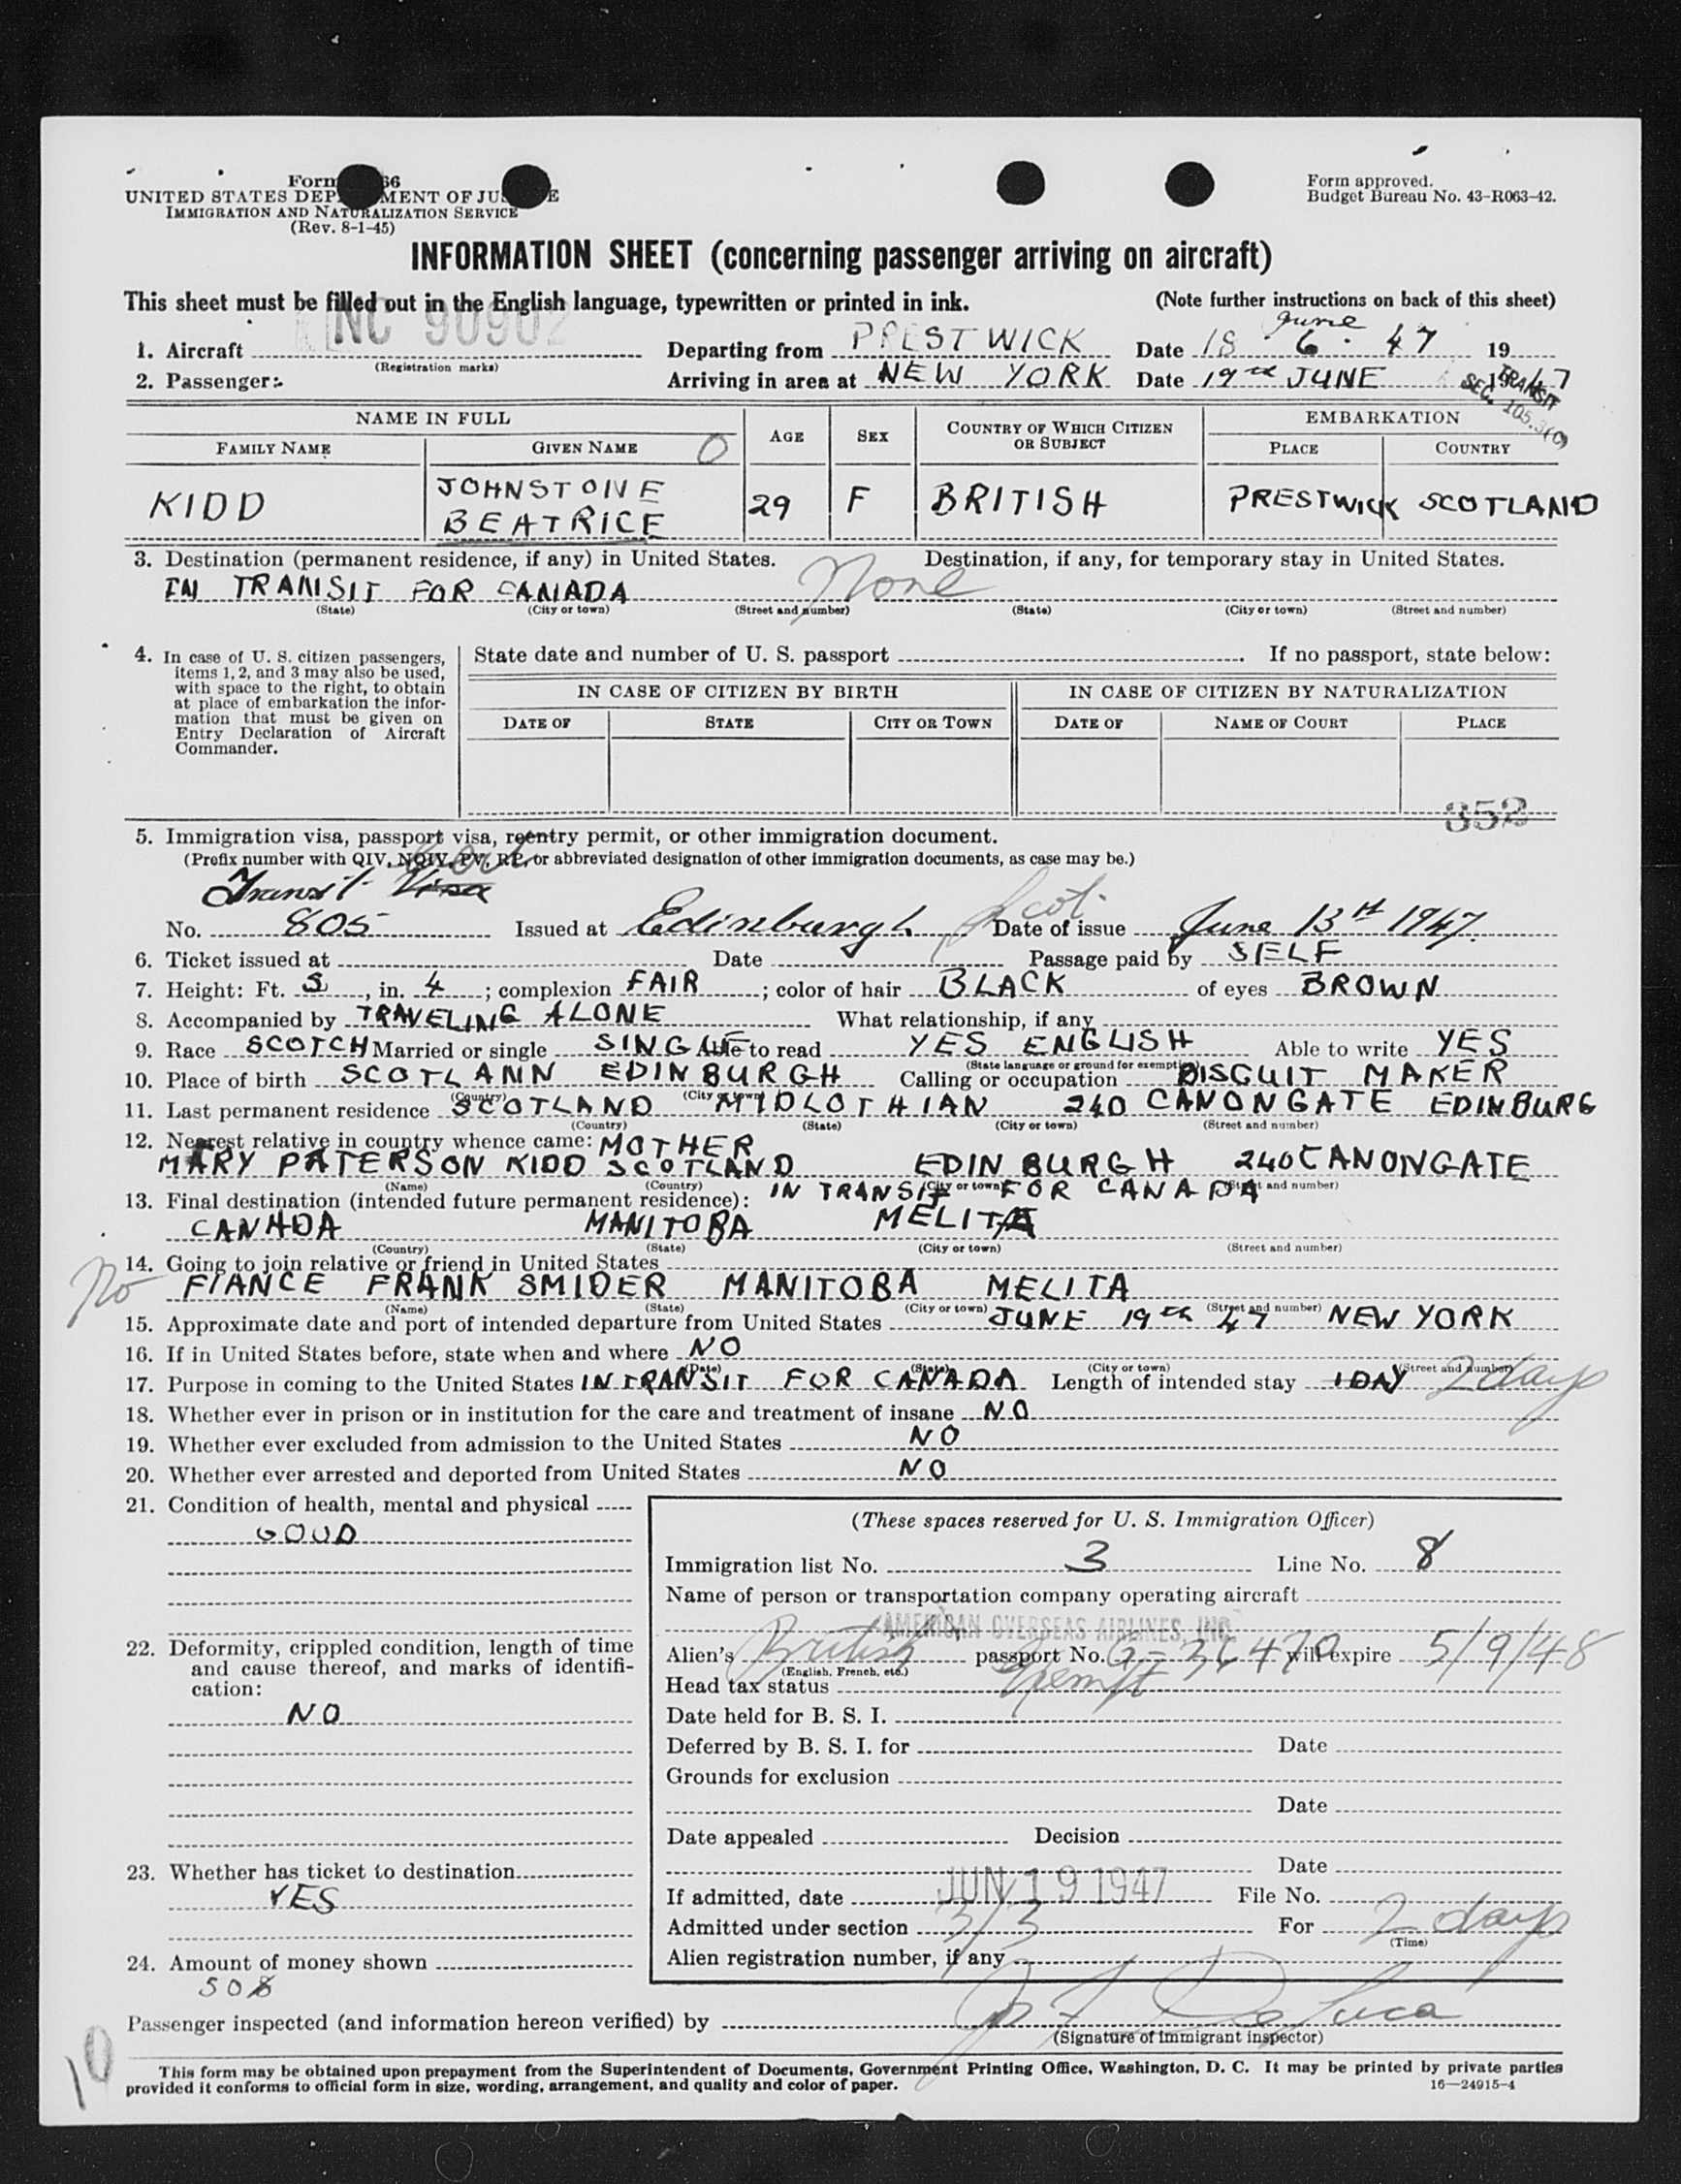 UNITED STATES DEP MENT OF JUS E
IMMIGRATION AND NATURALIZATION SERVICE
(Rev. 8-1-45)
Form approved.
Budget Bureau No. 43-R063-42.
INFORMATION SHEET (concerning passenger arriving on aircraft)
This sheet must be filled out in the English language, typewritten or printed in ink. (Note further instructions on back of this sheet)
NC 90902
1. Aircraft Departing from PRESTWICK Date 18 6. 47 19
June
(Registration marks)
2. Passenger: Arriving in area at NEW YORK Date 19th JUNE 1947
TRANSIT
SEC. 105.3(C)
NAME IN FULL AGE SEX COUNTRY OF WHICH CITIZEN OR SUBJECT EMBARKATION
FAMILY NAME GIVEN NAME O PLACE COUNTRY
KIDD JOHNSTONE BEATRICE 29 F BRITISH PRESTWICK SCOTLAND
3. Destination (permanent residence, if any) in United States. Destination, if any, for temporary stay in United States.
IN TRANSIT FOR CANADA None
(State) (City or town) (Street and number) (State) (City or town) (Street and number)
4. In case of U. S. citizen passengers, items 1, 2, and 3 may also be used, with space to the right, to obtain at place of embarkation the information that must be given on Entry Declaration of Aircraft Commander.
State date and number of U. S. passport . If no passport, state below:
IN CASE OF CITIZEN BY BIRTH IN CASE OF CITIZEN BY NATURALIZATION
DATE OF STATE CITY OR TOWN DATE OF NAME OF COURT PLACE
352
5. Immigration visa, passport visa, reentry permit, or other immigration document.
(Prefix number with QIV, NQIV, PV, RP, or abbreviated designation of other immigration documents, as case may be.)
Transit Visa
No. 805 Issued at Edinburgh Scot. Date of issue June 13th 1947.
6. Ticket issued at Date Passage paid by SELF
7. Height: Ft. 5, in. 4; complexion FAIR; color of hair BLACK of eyes BROWN
8. Accompanied by TRAVELING ALONE What relationship, if any
9. Race SCOTCH Married or single SINGLE Able to read YES ENGLISH Able to write YES
(State language or ground for exemption)
10. Place of birth SCOTLANN EDINBURGH Calling or occupation BISCUIT MAKER
(Country) (City or town)
11. Last permanent residence SCOTLAND MIDLOTHIAN 240 CANONGATE EDINBURG
(Country) (State) (City or town) (Street and number)
12. Nearest relative in country whence came: MOTHER
MARY PATERSON KIDD SCOTLAND EDINBURGH 240 CANONGATE
(Name) (Country) (City or town) (Street and number)
13. Final destination (intended future permanent residence): IN TRANSIT FOR CANADA
CANADA MANITOBA MELITA
(Country) (State) (City or town) (Street and number)
No
14. Going to join relative or friend in United States
FIANCE FRANK SMIDER MANITOBA MELITA
(Name) (State) (City or town) (Street and number)
15. Approximate date and port of intended departure from United States JUNE 19th 47 NEW YORK
16. If in United States before, state when and where NO
(Date) (State) (City or town) (Street and number)
17. Purpose in coming to the United States IN TRANSIT FOR CANADA Length of intended stay 1 DAY 2 days
18. Whether ever in prison or in institution for the care and treatment of insane NO
19. Whether ever excluded from admission to the United States NO
20. Whether ever arrested and deported from United States NO
21. Condition of health, mental and physical
GOOD
22. Deformity, crippled condition, length of time and cause thereof, and marks of identification:
NO
23. Whether has ticket to destination
YES
24. Amount of money shown
50$
(These spaces reserved for U. S. Immigration Officer)
Immigration list No. 3 Line No. 8
Name of person or transportation company operating aircraft
AMERICAN OVERSEAS AIRLINES, INC.
Alien's British passport No. G-36470 will expire 5/9/48
(English, French, etc.)
Head tax status Exempt
Date held for B. S. I.
Deferred by B. S. I. for Date
Grounds for exclusion
Date
Date appealed Decision
Date
If admitted, date JUN 19 1947 File No.
Admitted under section 3/3 For 2 days
(Time)
Alien registration number, if any
Passenger inspected (and information hereon verified) by
(Signature of immigrant inspector)
10
This form may be obtained upon prepayment from the Superintendent of Documents, Government Printing Office, Washington, D. C. It may be printed by private parties
provided it conforms to official form in size, wording, arrangement, and quality and color of paper. 16—24915-4